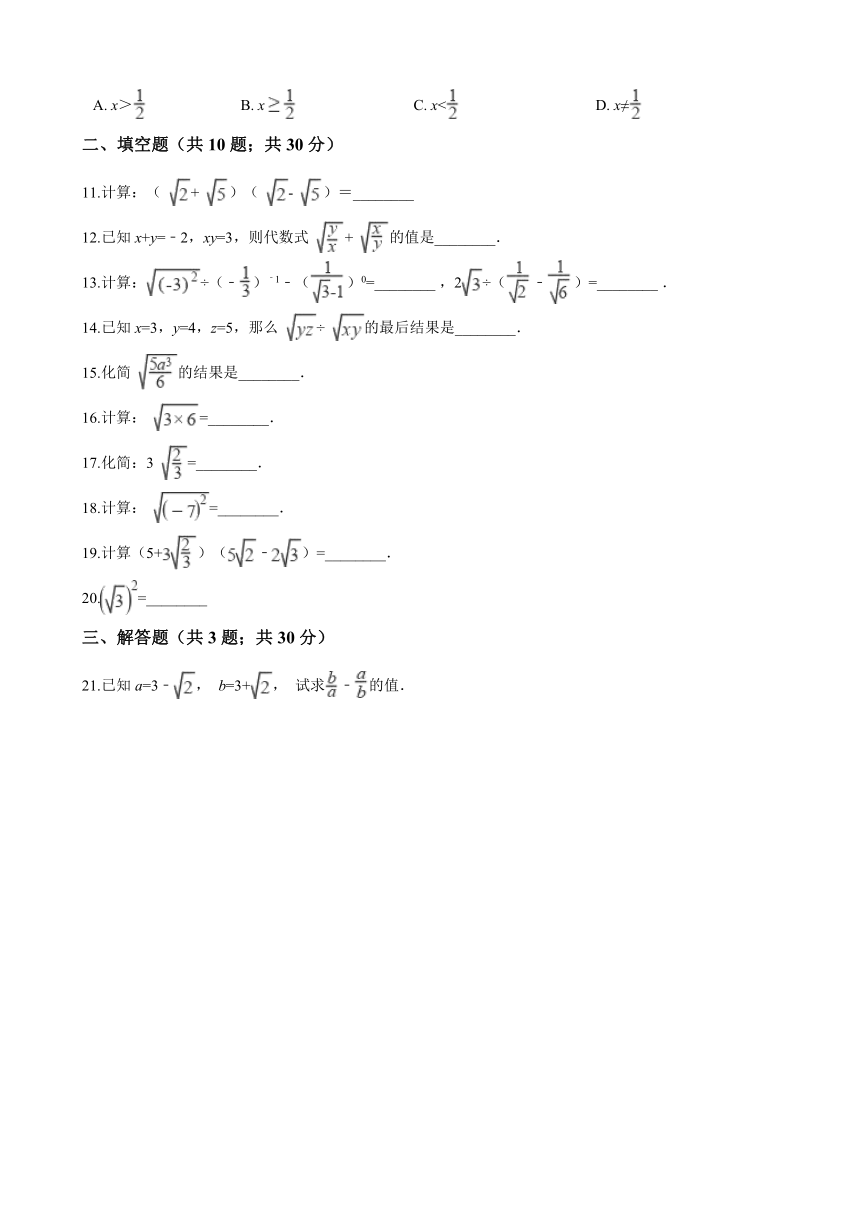 A. x＞1/2 B. x≥1/2 C. x<1/2 D. x≠1/2
二、填空题（共 10 题；共 30 分）
11.计算：（ √2+ √5）（ √2- √5）＝________
12.已知 x+y=﹣2，xy=3，则代数式 √(y/x) + √(x/y) 的值是________．
13.计算：√((-3)²)÷（﹣1/3）﹣¹﹣（1/(√3-1)）⁰=________ ，2√3÷（1/√2﹣1/√6）=________．
14.已知 x=3，y=4，z=5，那么 √(yz)÷ √(xy)的最后结果是________．
15.化简 √(5a³/6)的结果是________．
16.计算： √(3×6)=________．
17.化简：3 √(2/3)=________．
18.计算： √((−7)²)=________．
19.计算（5+3√(2/3)）（5√2﹣2√3）=________．
20.(√3)²=________
三、解答题（共 3 题；共 30 分）
21.已知 a=3﹣√2， b=3+√2， 试求b/a﹣a/b的值．